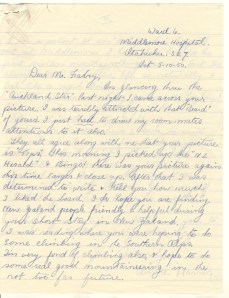 Ward 6,
Middlemore Hospital,
Otahuhu. S.E.7.
Oct. 8-10-52
Dear Mr.
On glancing thru the
"Auckland Star" last night I came across your
picture. I was terribly attracted with that "head"
of yours. I just had to draw my room-mates
attentions to it also.
They all agree along with me that your picture
is "tops". This morning I picked up the "N.Z.
Herald" & there was your picture again
this time larger & close up. After that I was
determined to write & tell you how much
I liked the head. I do hope you are finding
New Zealand people friendly & helpful during
your short stay in New Zealand.
I was reading where you are hoping to do
some climbing in the Southern Alps.
I'm very fond of climbing also, & hope to do
some real good mountaineering in the
not too far future.